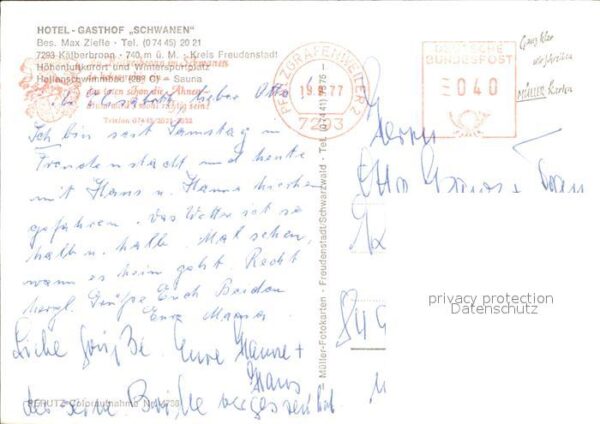 HOTEL - GASTHOF „SCHWANEN"
Bes. Max Zifle - Tel. (0 74 45) 20 21
7293 Kälberbronn - 740 m ü. M. - Kreis Freudenstadt
Höhenluftkurort und Wintersportplatz
Hallenschwimmbad (28° C) - Sauna
Telefon 07445/2021-2022
PFALZGRAFENWEILER 2
7293
DEUTSCHE
BUNDESPOST
040
Ganz klar
wir schreiben
immer Karten
lieber Otto
Ich bin seit Samstag in
Freudenstadt und heute
mit Hans u. Hanne hierher
gefahren. Das Wetter ist so
halb u. halb. Mal sehen,
wann es heim geht. Recht
herzl. Grüße Euch Beiden
Eure
Liebe Grüße Eure Hanne +
Hans
der seine Brille vergessen hat
Herrn
Otto + Frau
84
Müller-Fotokarten - Freudenstadt/Schwarzwald - Tel. (0 74 41)
Coloraufnahme Nr.
privacy protection
Datenschutz